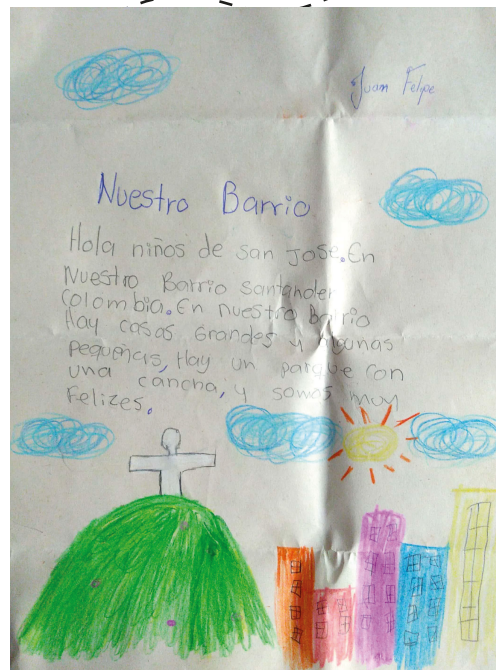 Juan Felipe
Nuestro Barrio
Hola niños de san José. En
Nuestro Barrio santander
Colombia. En nuestro barrio
Hay casas Grandes y algunas
pequeñas, Hay un parque con
una cancha, y somos muy
Felizes.